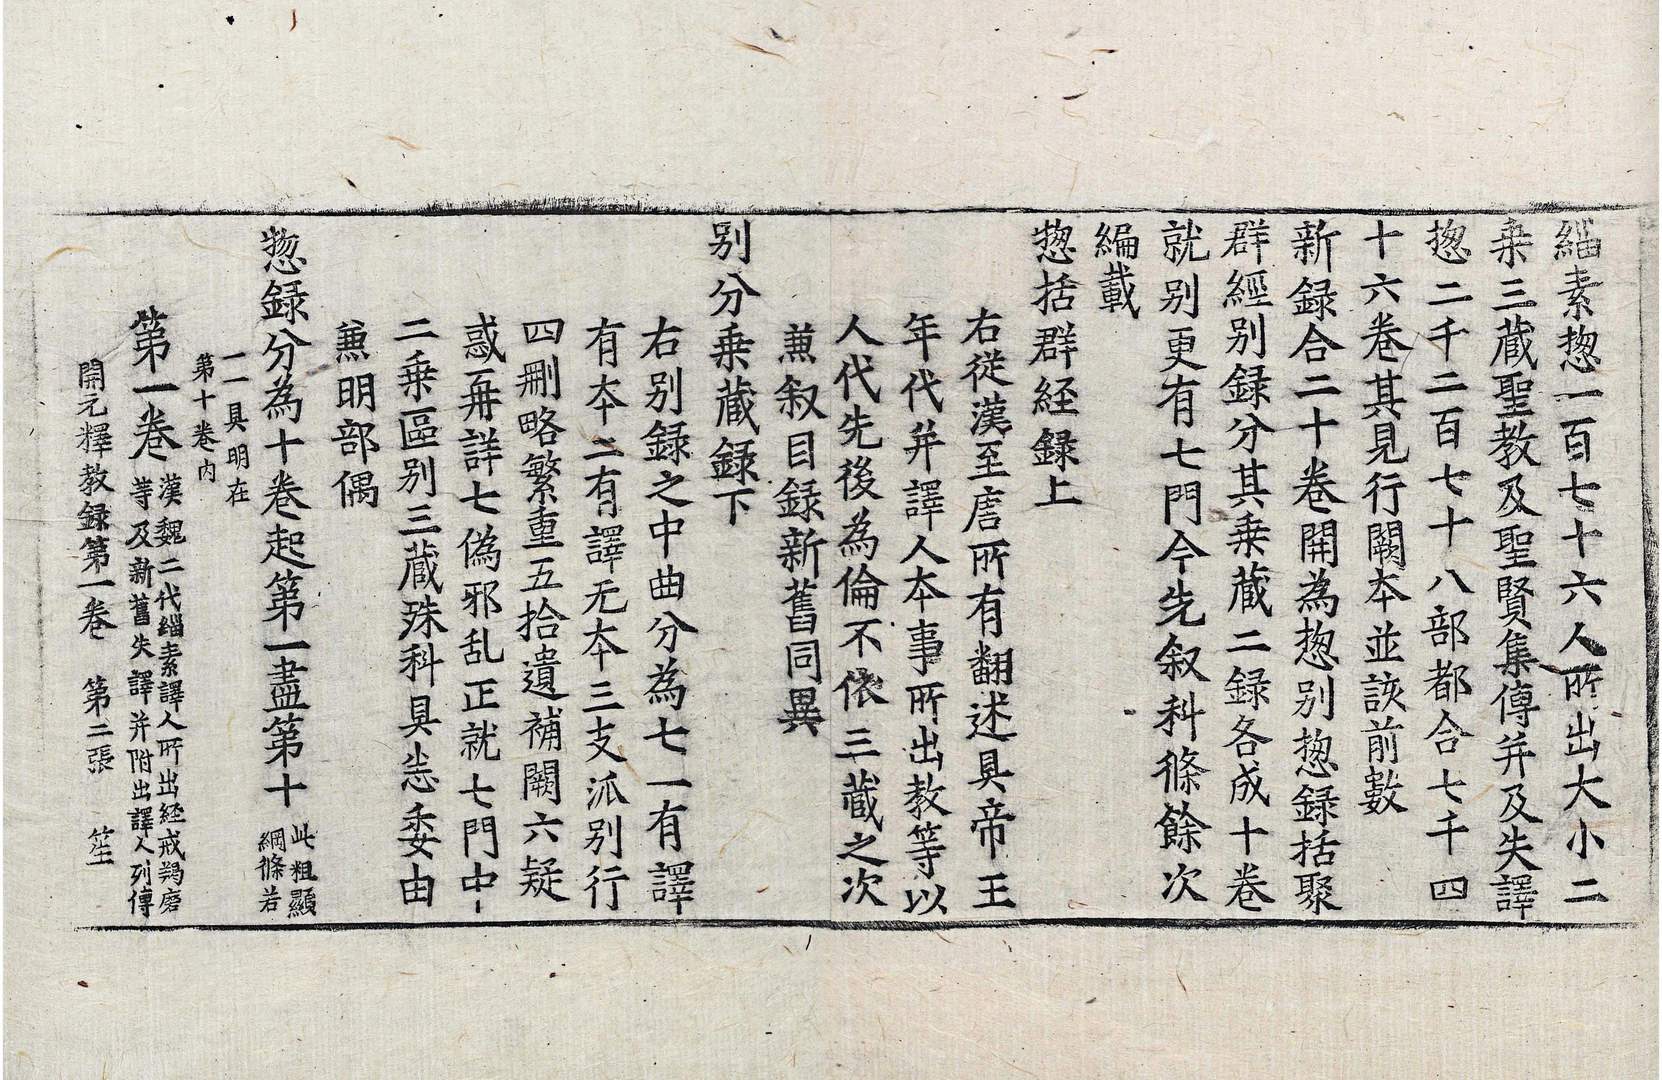 緇素惣一百七十六人所出大小二
乗三蔵聖教及聖賢集傳并及失譯
惣二千二百七十八部都合七千四
十六卷其見行闕本並該前數
新録合二十卷開為惣别惣録括聚
群經别録分其乗蔵二録各成十卷
就别更有七門今先叙科條餘次
編載
惣括群経録上
右從漢至唐所有翻述具帝王
年代并譯人本事所出教等以
人代先後為倫不依三蔵之次
兼叙目録新舊同異
别分乗蔵録下
右别録之中曲分為七一有譯
有本二有譯无本三支派别行
四刪略繁重五拾遺補闕六疑
惑再詳七偽邪乱正就七門中
二乗區别三蔵殊科具悉委由
兼明部偶
惣録分為十卷起第一盡第十
此粗顯
綱條若
一一具明在
第十卷内
第一卷
漢魏二代緇素譯人所出経戒羯磨
等及新舊失譯并附出譯人列傳
開元釋教録第一卷 第二張 笙